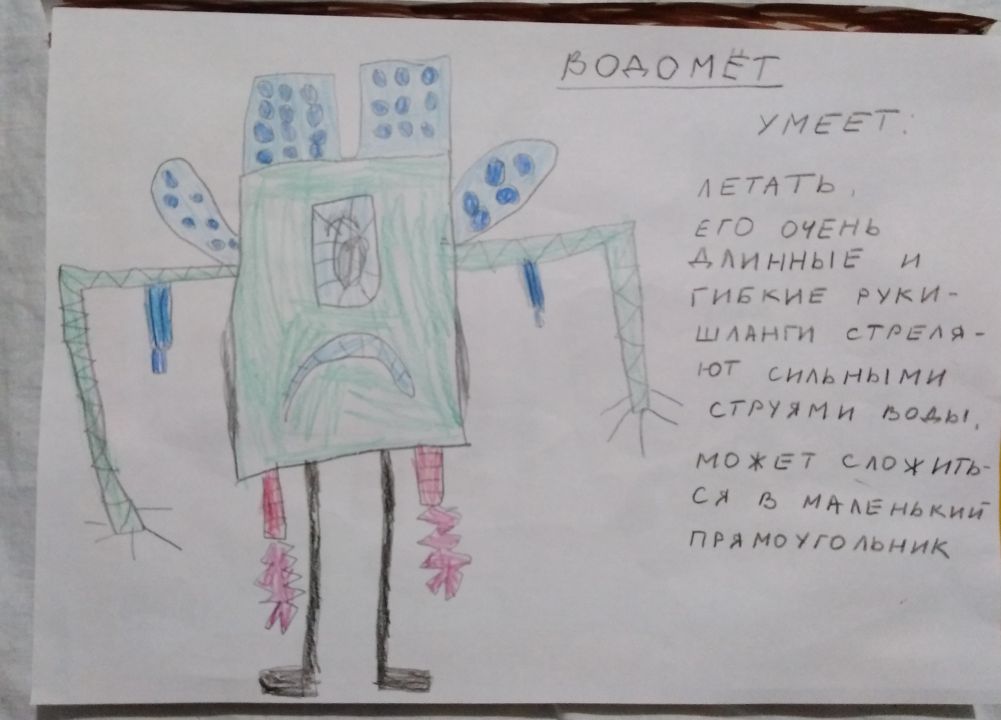 ВОДОМЁТ
УМЕЕТ:
ЛЕТАТЬ.
ЕГО ОЧЕНЬ
ДЛИННЫЕ И
ГИБКИЕ РУКИ-
ШЛАНГИ СТРЕЛЯ-
ЮТ СИЛЬНЫМИ
СТРУЯМИ ВОДЫ.
МОЖЕТ СЛОЖИТЬ-
СЯ В МАЛЕНЬКИЙ
ПРЯМОУГОЛЬНИК